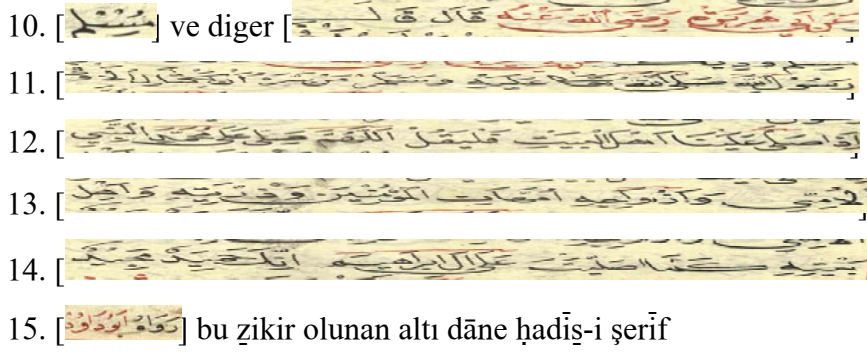 10. [مُسْلِمْ] ve diger [عن ابى هريرة رضى الله عنه قال قال]
11. [رسول الله صلى الله عليه وسلم من سره ان]
12. [اذا صلى علينا اهل البيت فليقل اللهم صلى على محمد النبي]
13. [الامي وازواجه امهات المؤمنين وذريته واهل]
14. [بيته كما صليت على ال ابراهيم انك حميد مجيد]
15. [رَوَاهُ اَبُودَاوُدْ] bu ẕikir olunan altı dāne ḥadīs̱-i şerīf